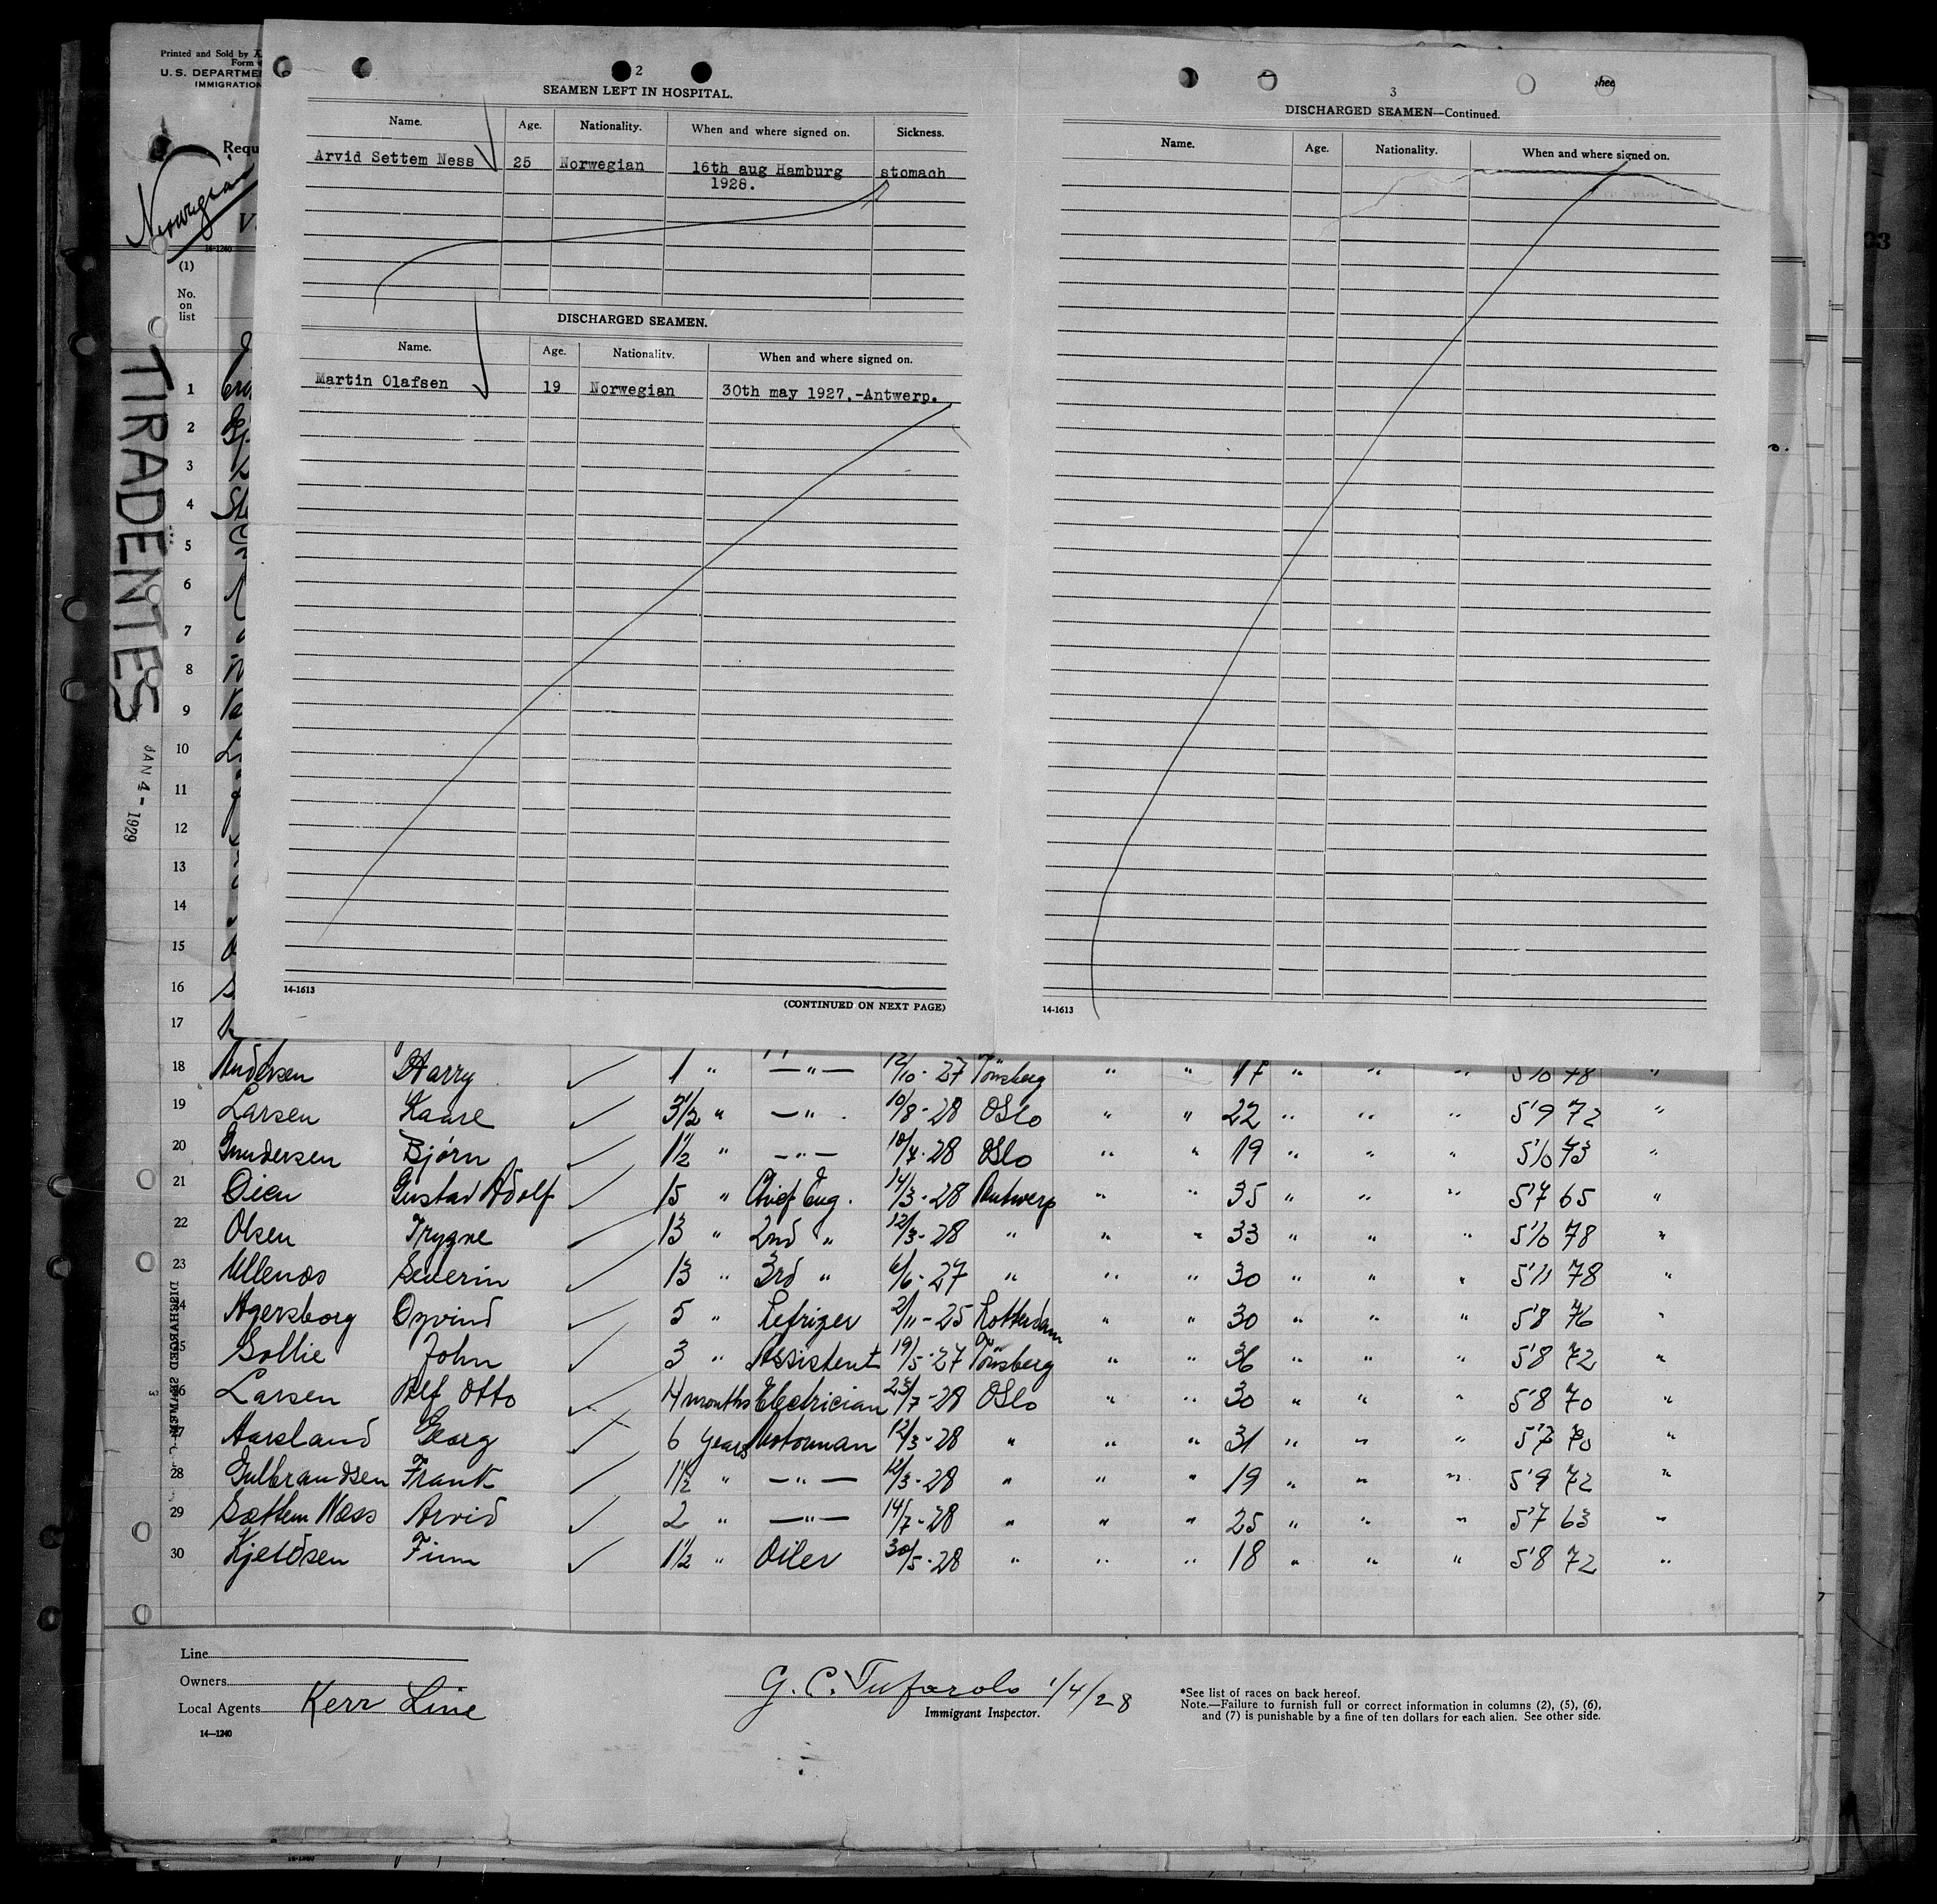 Printed and Sold by
Form
U. S. DEPARTME
IMMIGRATION
Requ
Norwegian
V
14-1240
(1)
No.
on
list
TIRADENTES
JAN 4-1929
2
SEAMEN LEFT IN HOSPITAL.
Name. Age. Nationality. When and where signed on. Sickness.
Arvid Settem Ness 25 Norwegian 16th aug Hamburg stomach
1928.
DISCHARGED SEAMEN.
Name. Age. Nationality. When and where signed on.
Martin Olafsen 19 Norwegian 30th may 1927.-Antwerp.
14-1613
(CONTINUED ON NEXT PAGE)
3
DISCHARGED SEAMEN—Continued.
Name. Age. Nationality. When and where signed on.
14-1613
1
2
3
4
5
6
7
8
9
10
11
12
13
14
15
16
17
18 Andersen Harry ✓ 1 " —"— 12/10-27 Tönsberg " " 17 " " " 5'10 78 "
19 Larsen Kaare ✓ 3½ " —" 10/8-28 Oslo " " 22 " " " 5'9 72 "
20 Gundersen Bjørn ✓ 1½ " —"— 10/4-28 Oslo " " 19 " " " 5'10 73 "
21 Oien Gustav Adolf ✓ 15 " Chief Eng. 14/3-28 Antwerp " " 35 " " " 5'7 65 "
22 Olsen Trygve ✓ 13 " 2nd " 12/3-28 " " " 33 " " " 5'10 78 "
23 Ullenæs Severin ✓ 13 " 3rd " 6/6-27 " " " 30 " " " 5'11 78 "
24 Agersborg Oyvind ✓ 5 " Refriger 2/11-25 Rotterdam " " 30 " " " 5'8 76 "
25 Sollie John ✓ 3 " Assistent 19/5-27 Tönsberg " " 36 " " " 5'8 72 "
26 Larsen Alf Otto ✓ 4 months Electrician 23/7-28 Oslo " " 30 " " " 5'8 70 "
27 Aarsland Georg ✓ 6 years Motorman 12/3-28 " " " 31 " " " 5'7 70 "
28 Gulbrandsen Frank ✓ 1½ " —"— 12/3-28 " " " 19 " " " 5'9 72 "
29 Sættem Næss Arvid ✓ 2 " —"— 14/7-28 " " " 25 " " " 5'7 63 "
30 Kjeldsen Finn ✓ 1½ " Oiler 30/5-28 " " " 18 " " " 5'8 72 "
DISCHARGED SEAMEN
Line
Owners
Local Agents Kerr Line
14—1240
G. C. Tufarolo 1/4/28
Immigrant Inspector.
*See list of races on back hereof.
Note.—Failure to furnish full or correct information in columns (2), (5), (6),
and (7) is punishable by a fine of ten dollars for each alien. See other side.